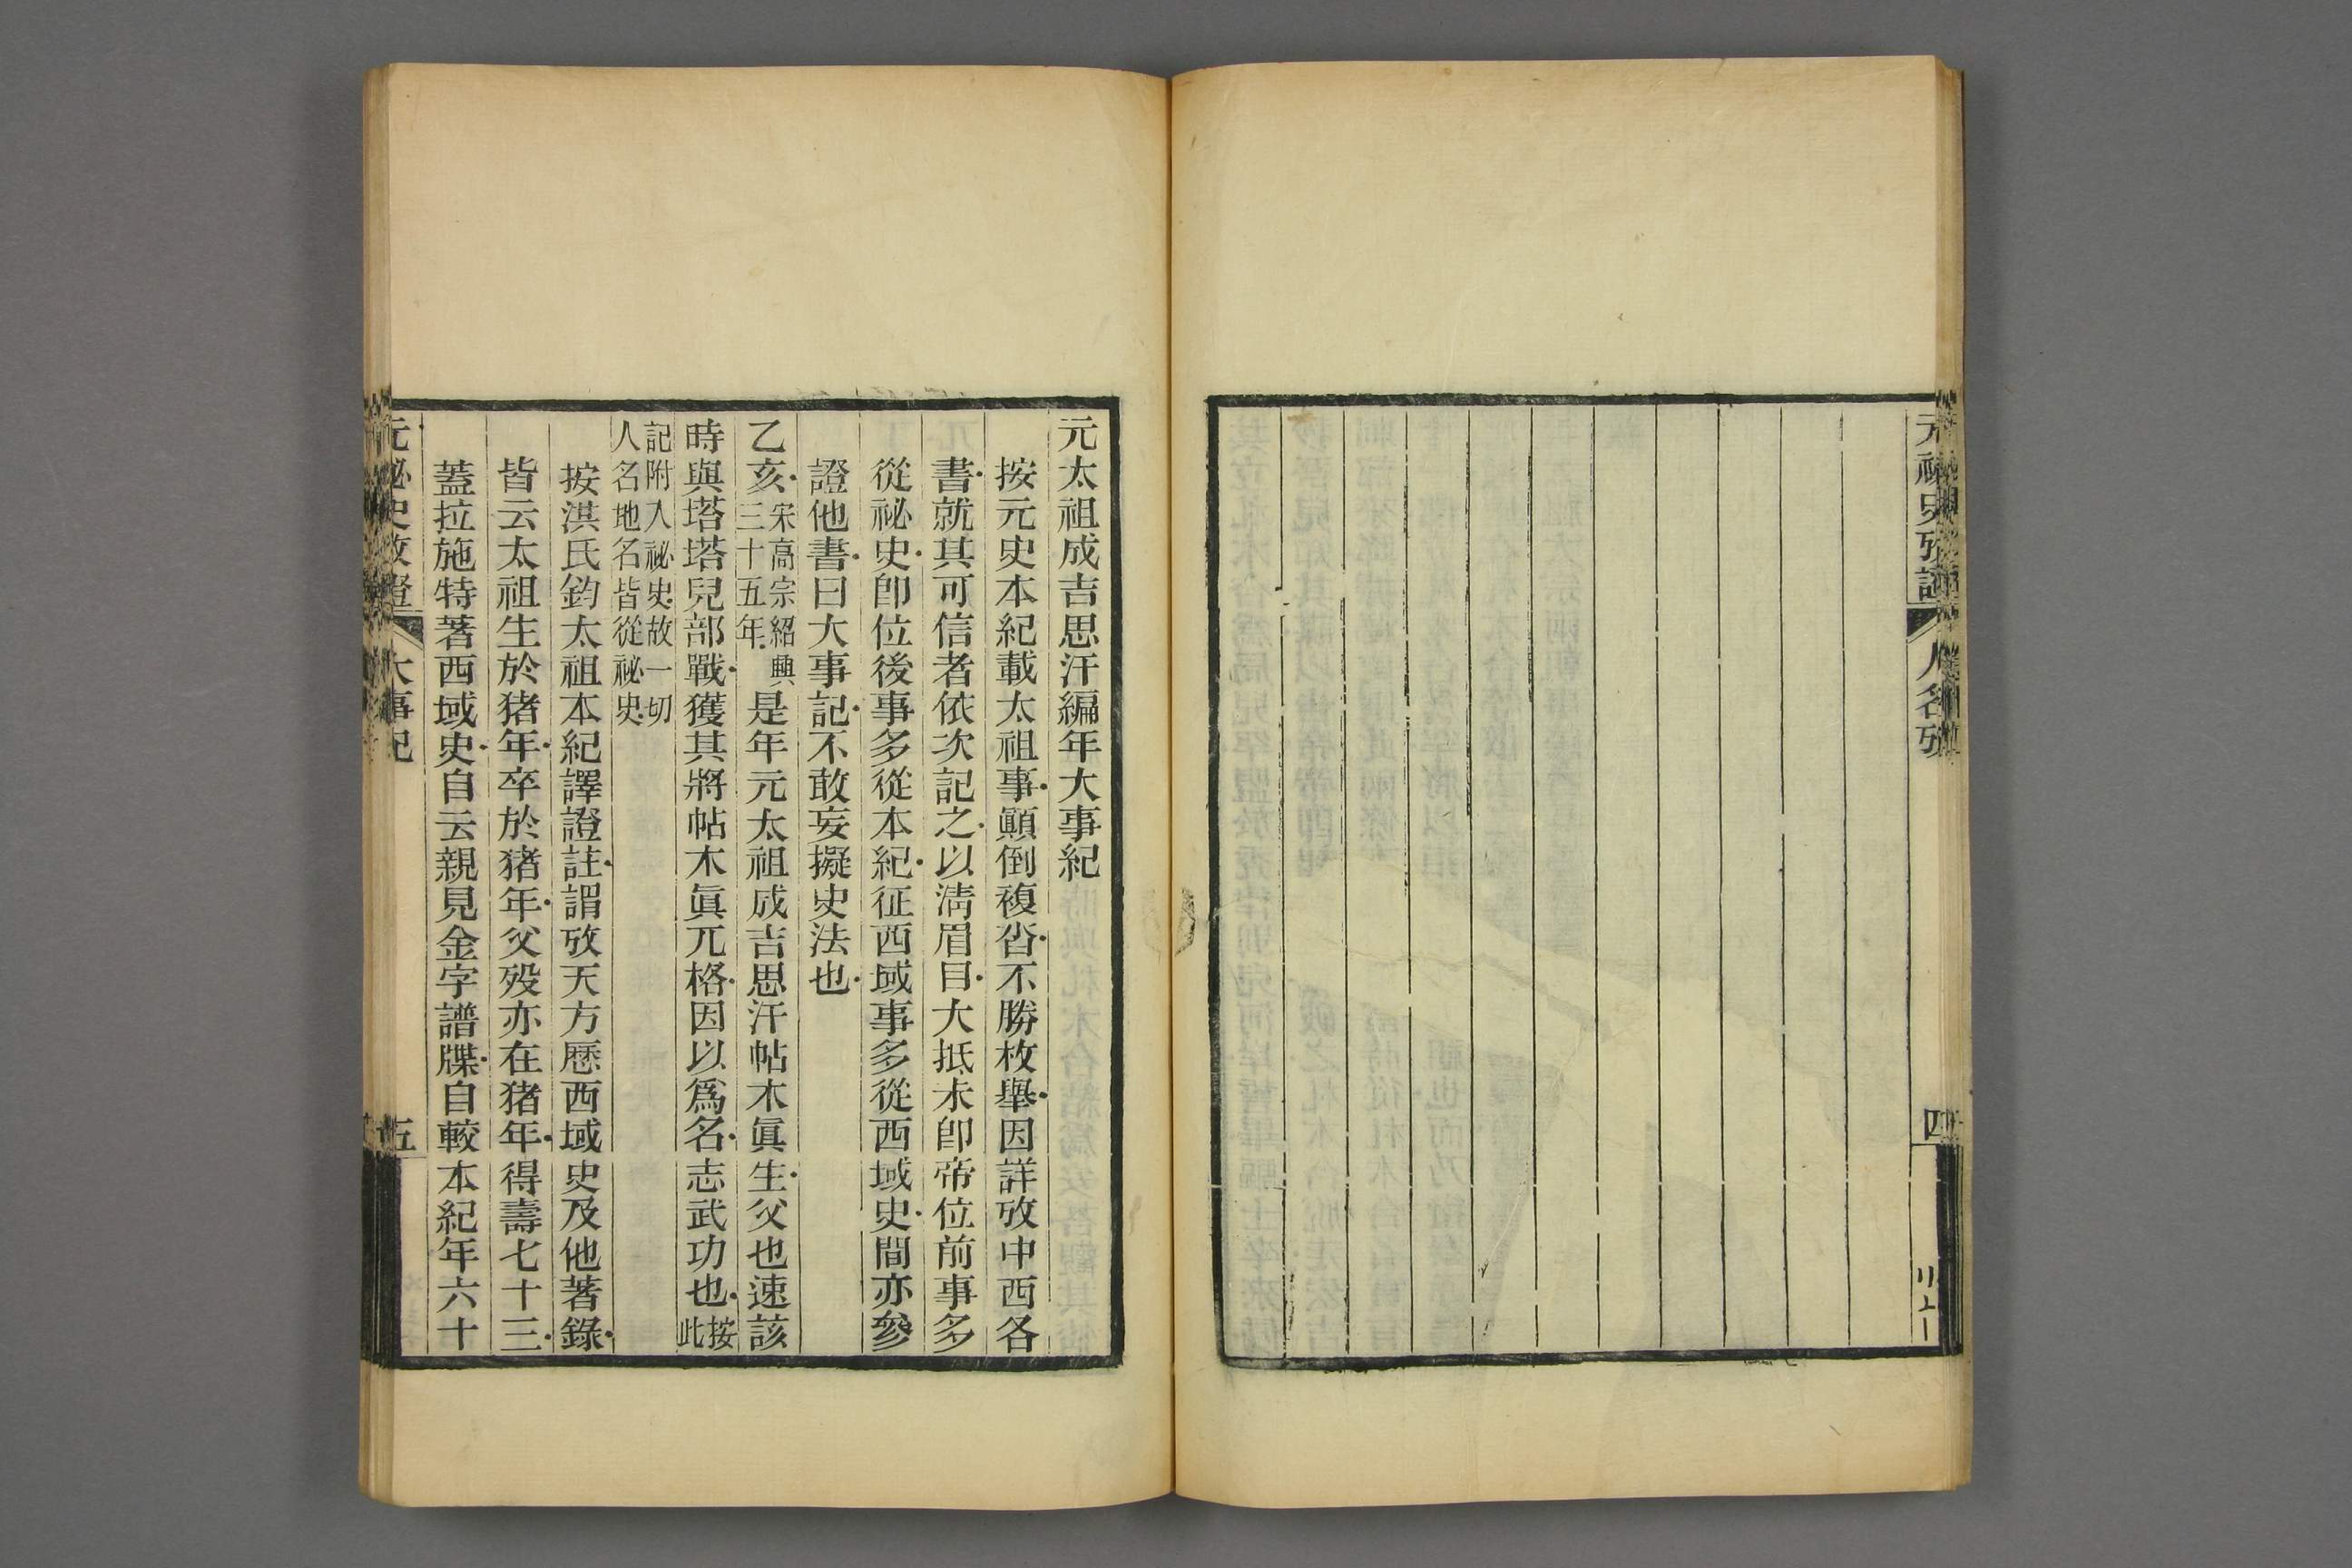 元祕史攷證
人名攷
四
元太祖成吉思汗編年大事紀
按元史本紀載太祖事顚倒複沓不勝枚舉因詳攷中西各
書就其可信者依次記之以淸眉目大抵未卽帝位前事多
從祕史卽位後事多從本紀征西域事多從西域史間亦參
證他書曰大事記不敢妄擬史法也
乙亥宋高宗紹興三十五年是年元太祖成吉思汗帖木眞生父也速該
時與塔塔兒部戰獲其將帖木眞兀格因以爲名志武功也按此
記附入祕史故一切
人名地名皆從祕史
按洪氏鈞太祖本紀譯證註謂攷天方曆西域史及他著錄
皆云太祖生於猪年卒於猪年父歿亦在猪年得壽七十三
蓋拉施特著西域史自云親見金字譜牒自較本紀年六十
元祕史攷證
大事紀
五